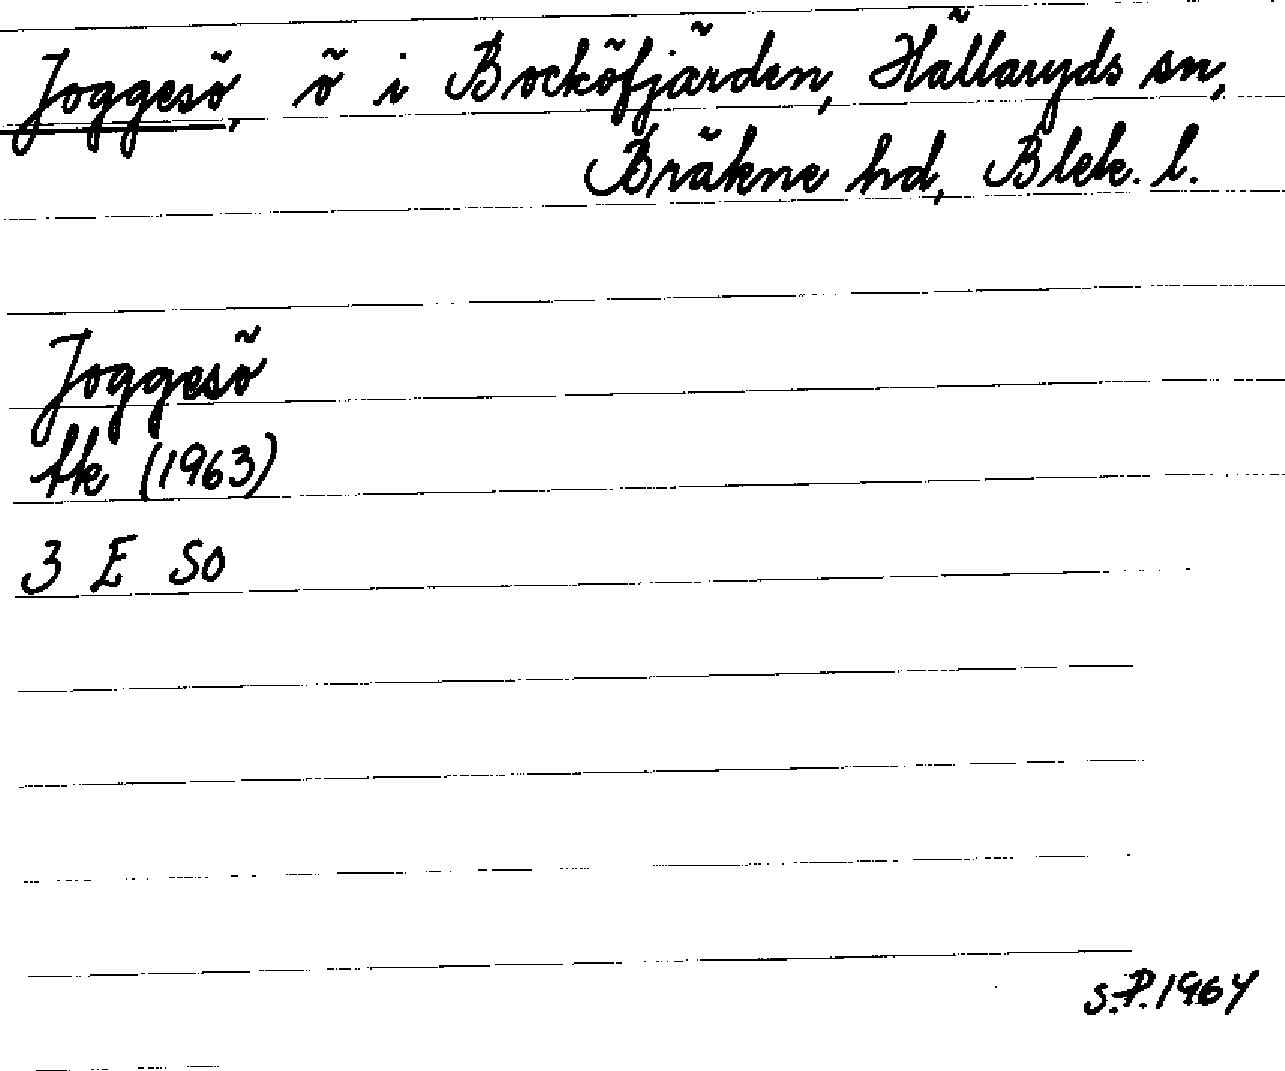 Joggesö, ö i Bocköfjärden, Hällaryds sn,
Bräkne hd, Blek. l.
Joggesö
fk (1963)
3 E SO
S.P. 1964